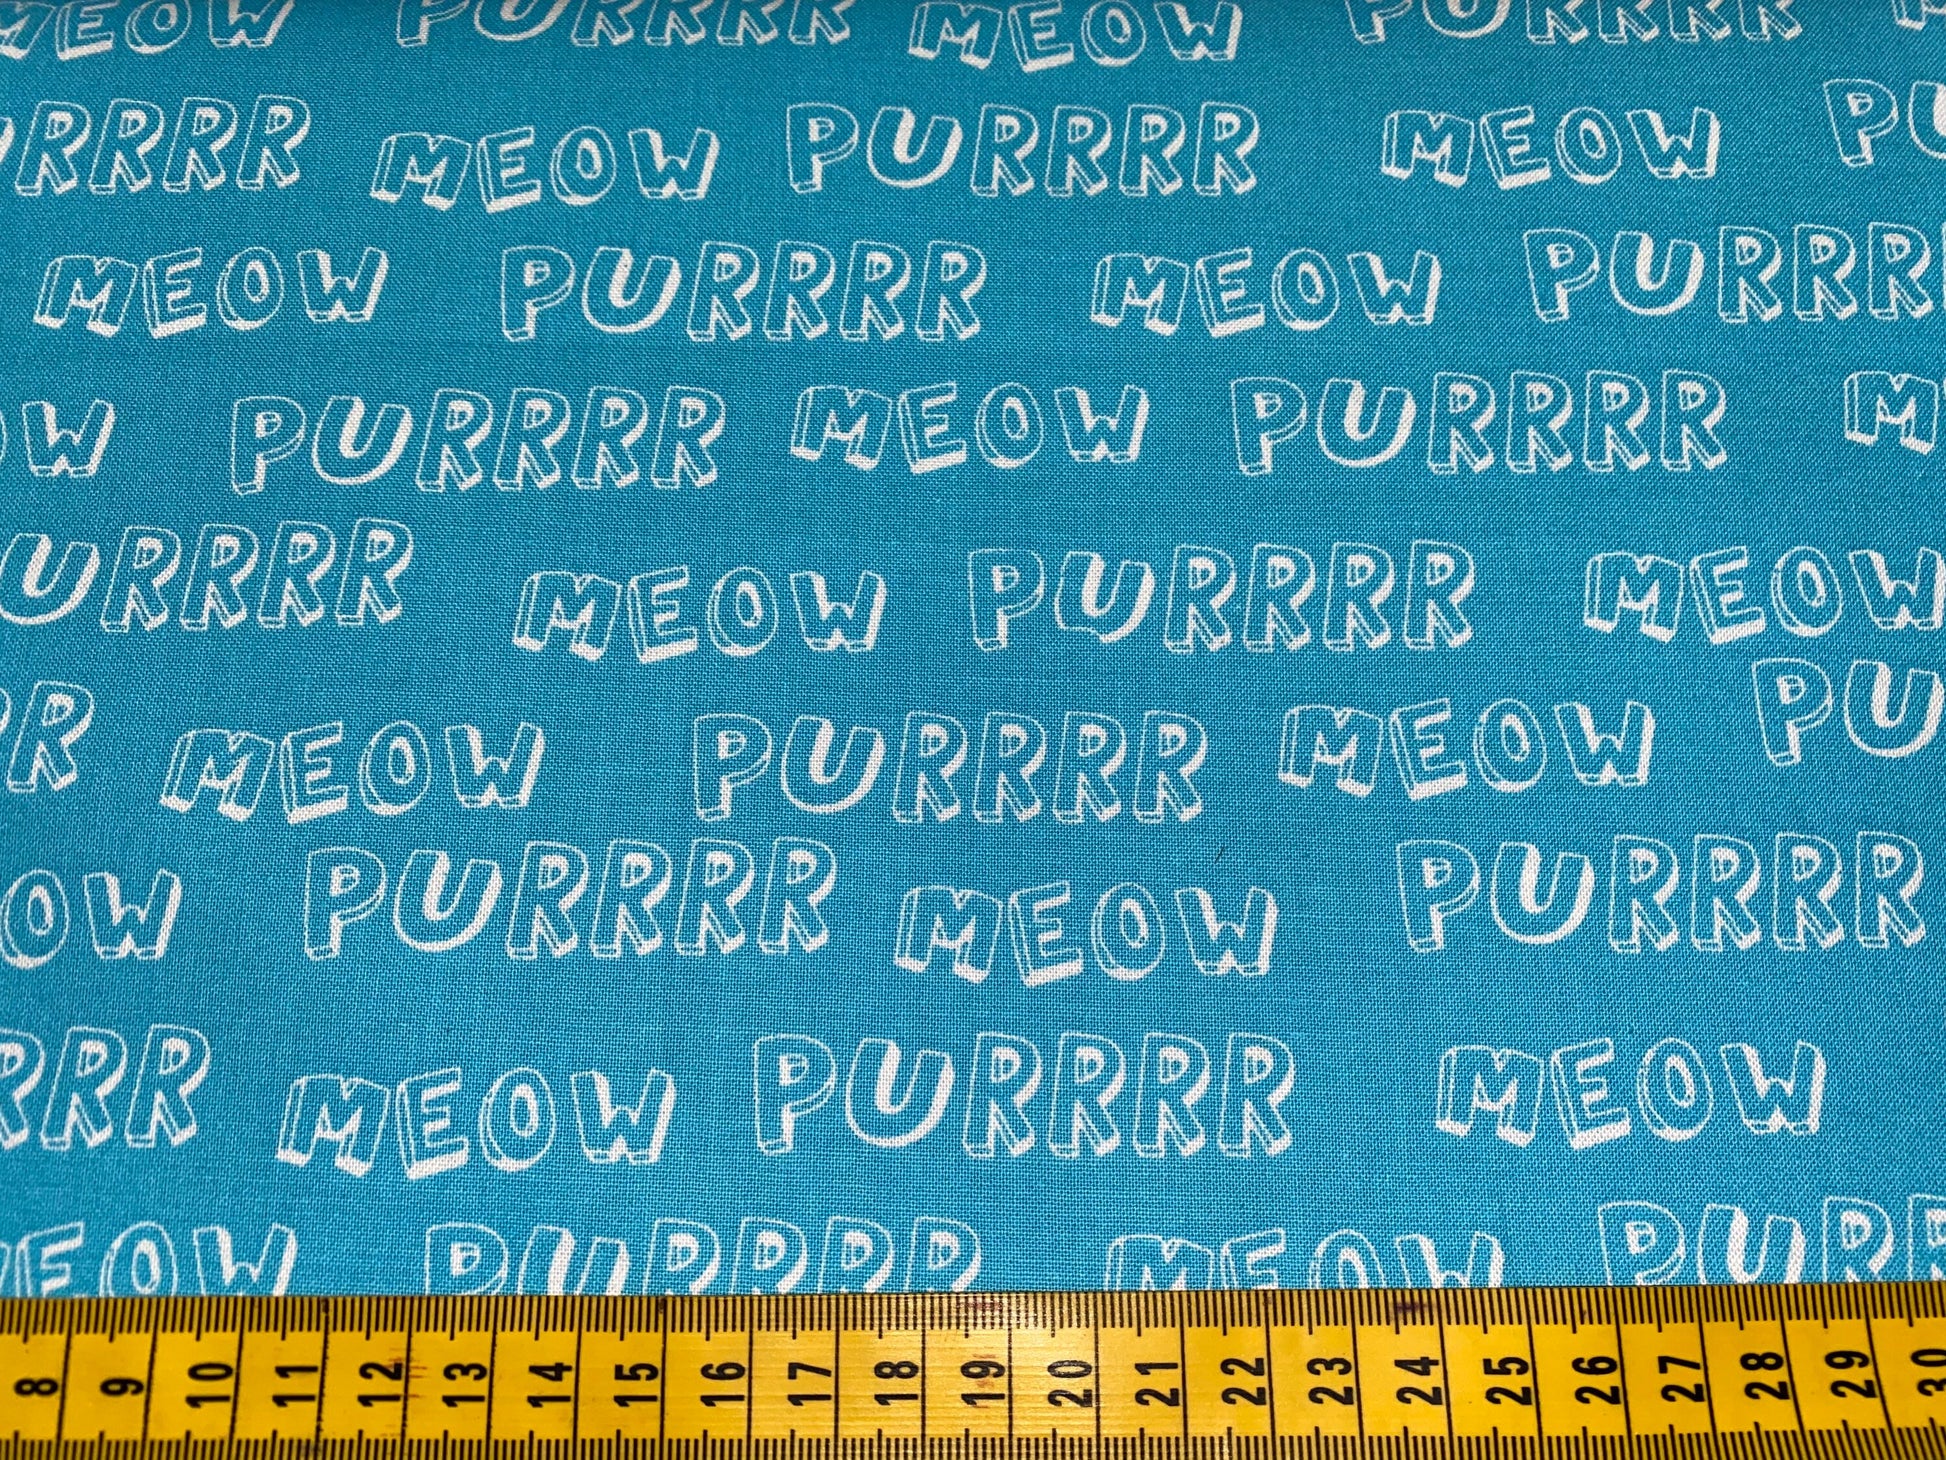 MEOW PURRRR MEOW PURRRR
RRRR MEOW PURRRR MEOW PU
MEOW PURRRR MEOW PURRR
W PURRRR MEOW PURRRR M
URRRR MEOW PURRRR MEOW
R MEOW PURRRR MEOW PU
OW PURRRR MEOW PURRRR
RRR MEOW PURRRR MEOW
EOW PURRRR MEOW PUR
8 9 10 11 12 13 14 15 16 17 18 19 20 21 22 23 24 25 26 27 28 29 30